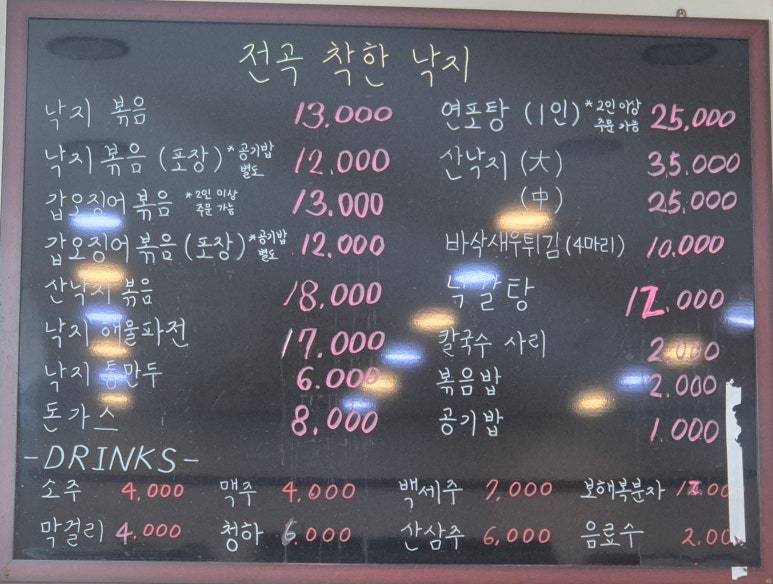 전곡 착한 낙지
낙지 볶음 13,000
낙지 볶음 (포장) *공기밥 별도 12,000
갑오징어 볶음 *2인 이상 주문 가능 13,000
갑오징어 볶음 (포장) *공기밥 별도 12,000
산낙지 볶음 18,000
낙지 해물파전 17,000
낙지 통만두 6.000
돈가스 8,000
연포탕 (1인) *2인 이상 주문 가능 25,000
산낙지 (大) 35,000
(中) 25,000
바삭새우튀김 (4마리) 10,000
낙갈탕 12,000
칼국수 사리 2,000
볶음밥 2,000
공기밥 1,000
-DRINKS-
소주 4,000 맥주 4,000 백세주 7,000 보해복분자
막걸리 4.000 청하 6,000 산삼주 6,000 음료수 2.00